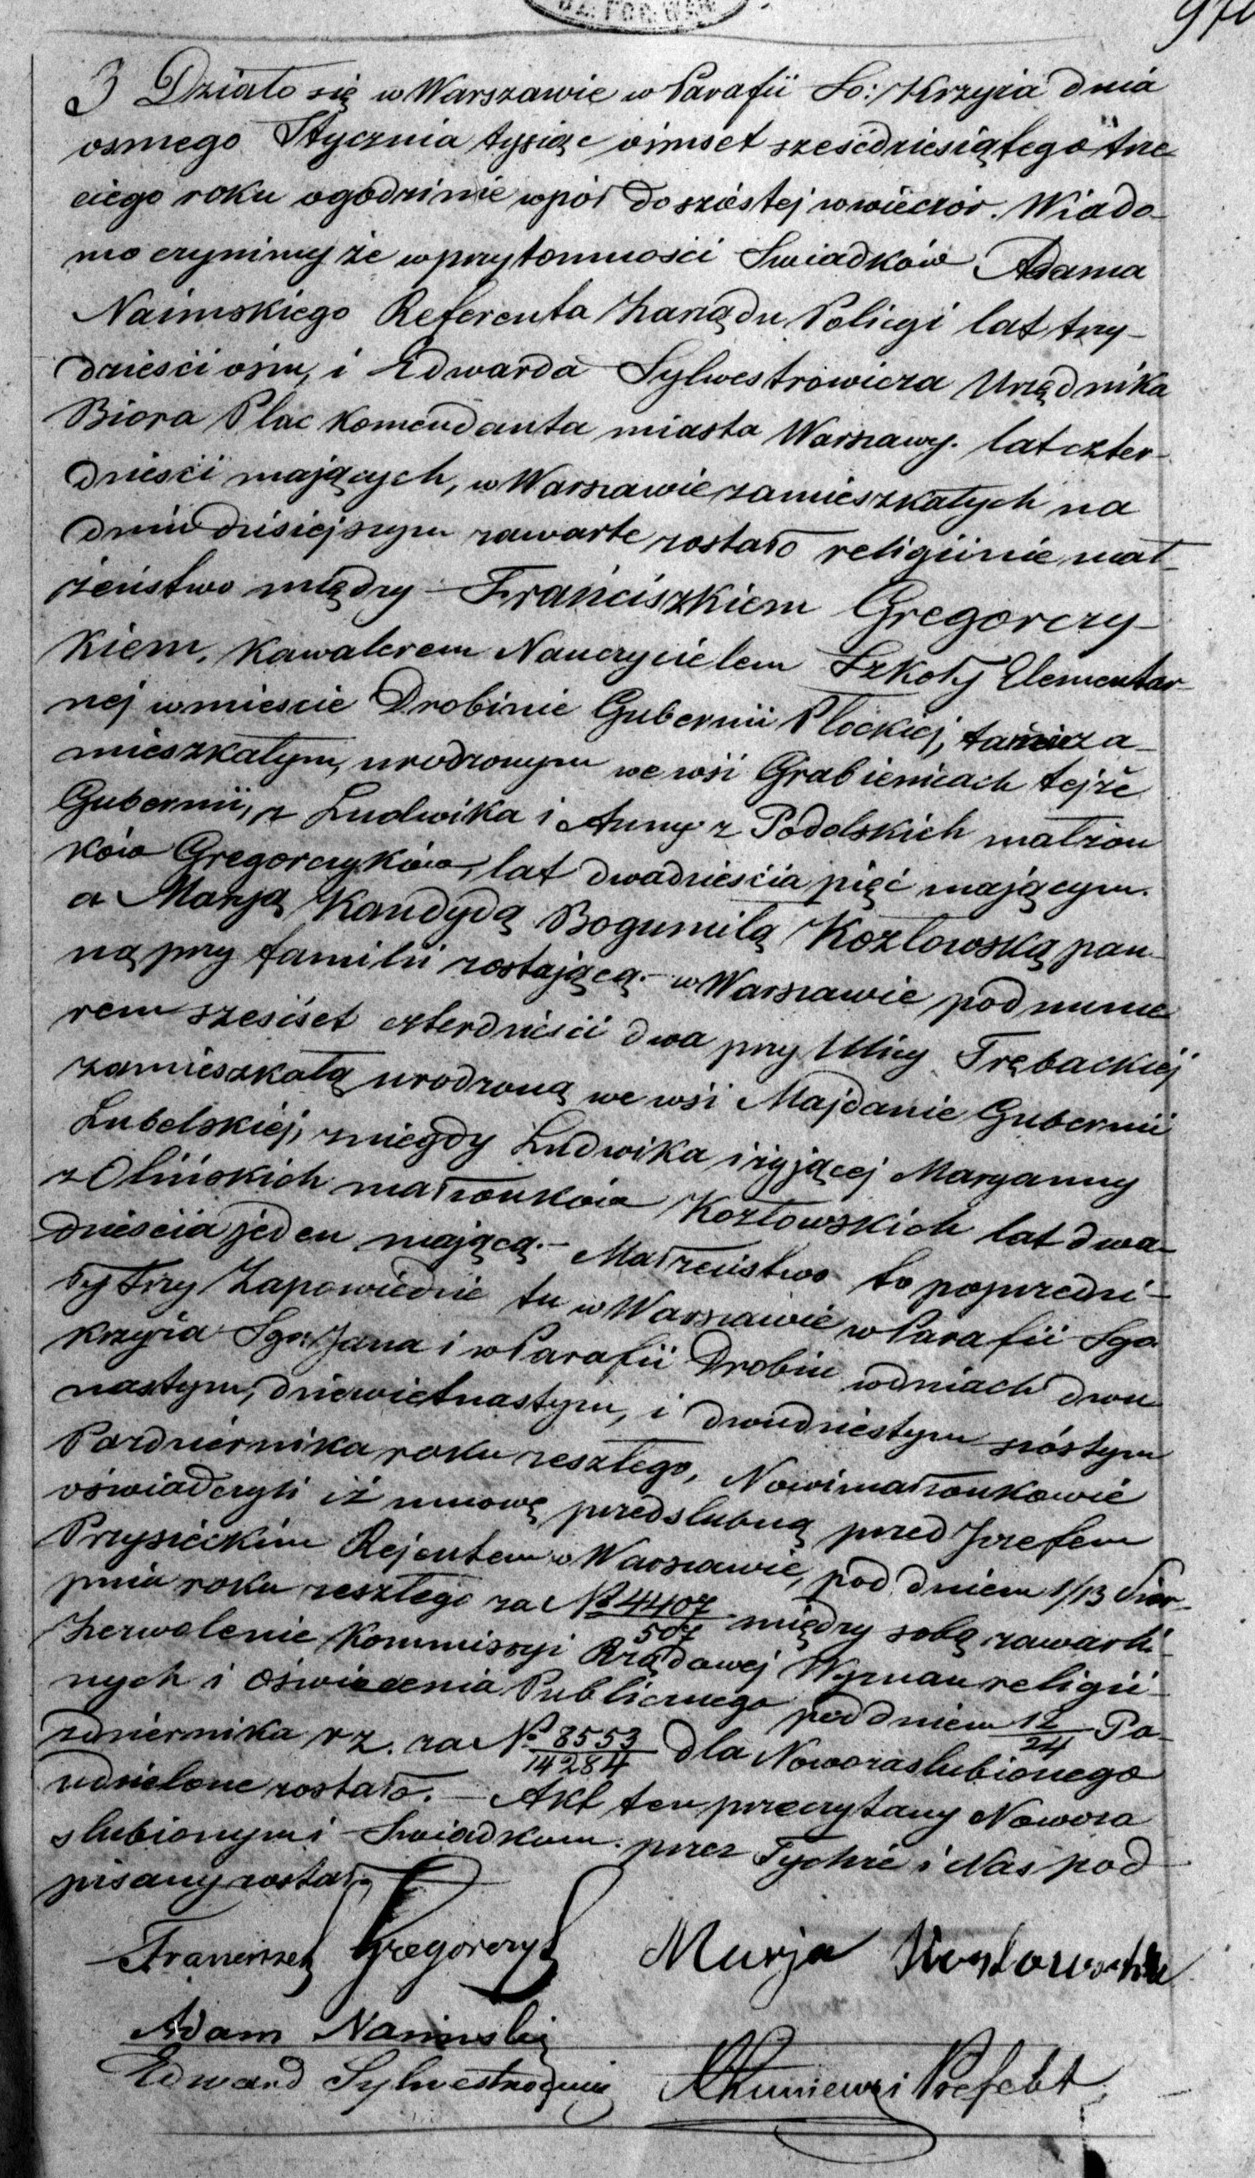 DZ. POR. WAW
970
3 Działo się w Warszawie w Parafii So: Krzyża dnia
osmego Stycznia tysiąc ośmset sześćdziesiątego trze
ciego roku o godzinie w pół do szóstej w wieczór. Wiado-
mo czynimy że w przytomności Swiadków Adama
Naimskiego Referenta Zarządu Policyi lat trzy-
dzieści ośm, i Edwarda Sylwestrowicza Urzędnika
Biora Plac Komendanta miasta Warszawy. lat czter-
dzieści mających, w Warszawie zamieszkałych na
dniu dzisiejszym zawarte zostało religijnie mał-
żeństwo między Franciszkiem Gregorczy-
kiem, Kawalerem Nauczycielem Szkoły Elementar-
nej w mieście Drobinie Gubernii Płockiej, tamże za-
mieszkałym, urodzonym we wsi Grabienicach tejże
Gubernii, z Ludwika i Anny z Podolskich małżon
ków Gregorczyków, lat dwadzieścia pięć mającym.
a Marją Kandydą Bogumiłą Kozłowską pan-
ną przy familii zostającą.- w Warszawie pod nume
rem sześćset czterdzieści dwa przy Ulicy Trębackiej
zamieszkałą urodzoną we wsi Majdanie Gubernii
Lubelskiej, z niegdy Ludwika i żyjącej Maryanny
z Olińskich małżonków Kozłowskich lat dwa-
dzieścia jeden mającą.- Małżeństwo to poprzedzi-
ły trzy Zapowiedzie tu w Warszawie w Parafii Sgo
Krzyża Sgo: Jana i w Parafii Drobin w dniach dwu-
nastym, dziewietnastym, i dwudziestym szóstym
Pazdziernika roku zeszłego, Nowi małżonkowie
oświadczyli iż umowę przedslubną przed Jozefem
Przysieckim Rejentem w Warszawie, pod dniem 1/13 Sier-
pnia roku zeszłego za No 4407/507 między sobą zawarli.
Zezwolenie Kommissyi Rządowej Wyznań religii-
nych i Oświecenia Publicznego pod dniem 12/24 Pa-
zdziernika r z. za No 8553/14284 dla Nowozaslubionego
udzielone zostało. - Akt ten przeczytany Nowoza
slubionym i Swiadkom. przez Tychże i Nas pod
pisany został.
Franciszek Gregorczyk Marja Kozłowska
Adam Naimski
Edward Sylwestrowicz Prefekt